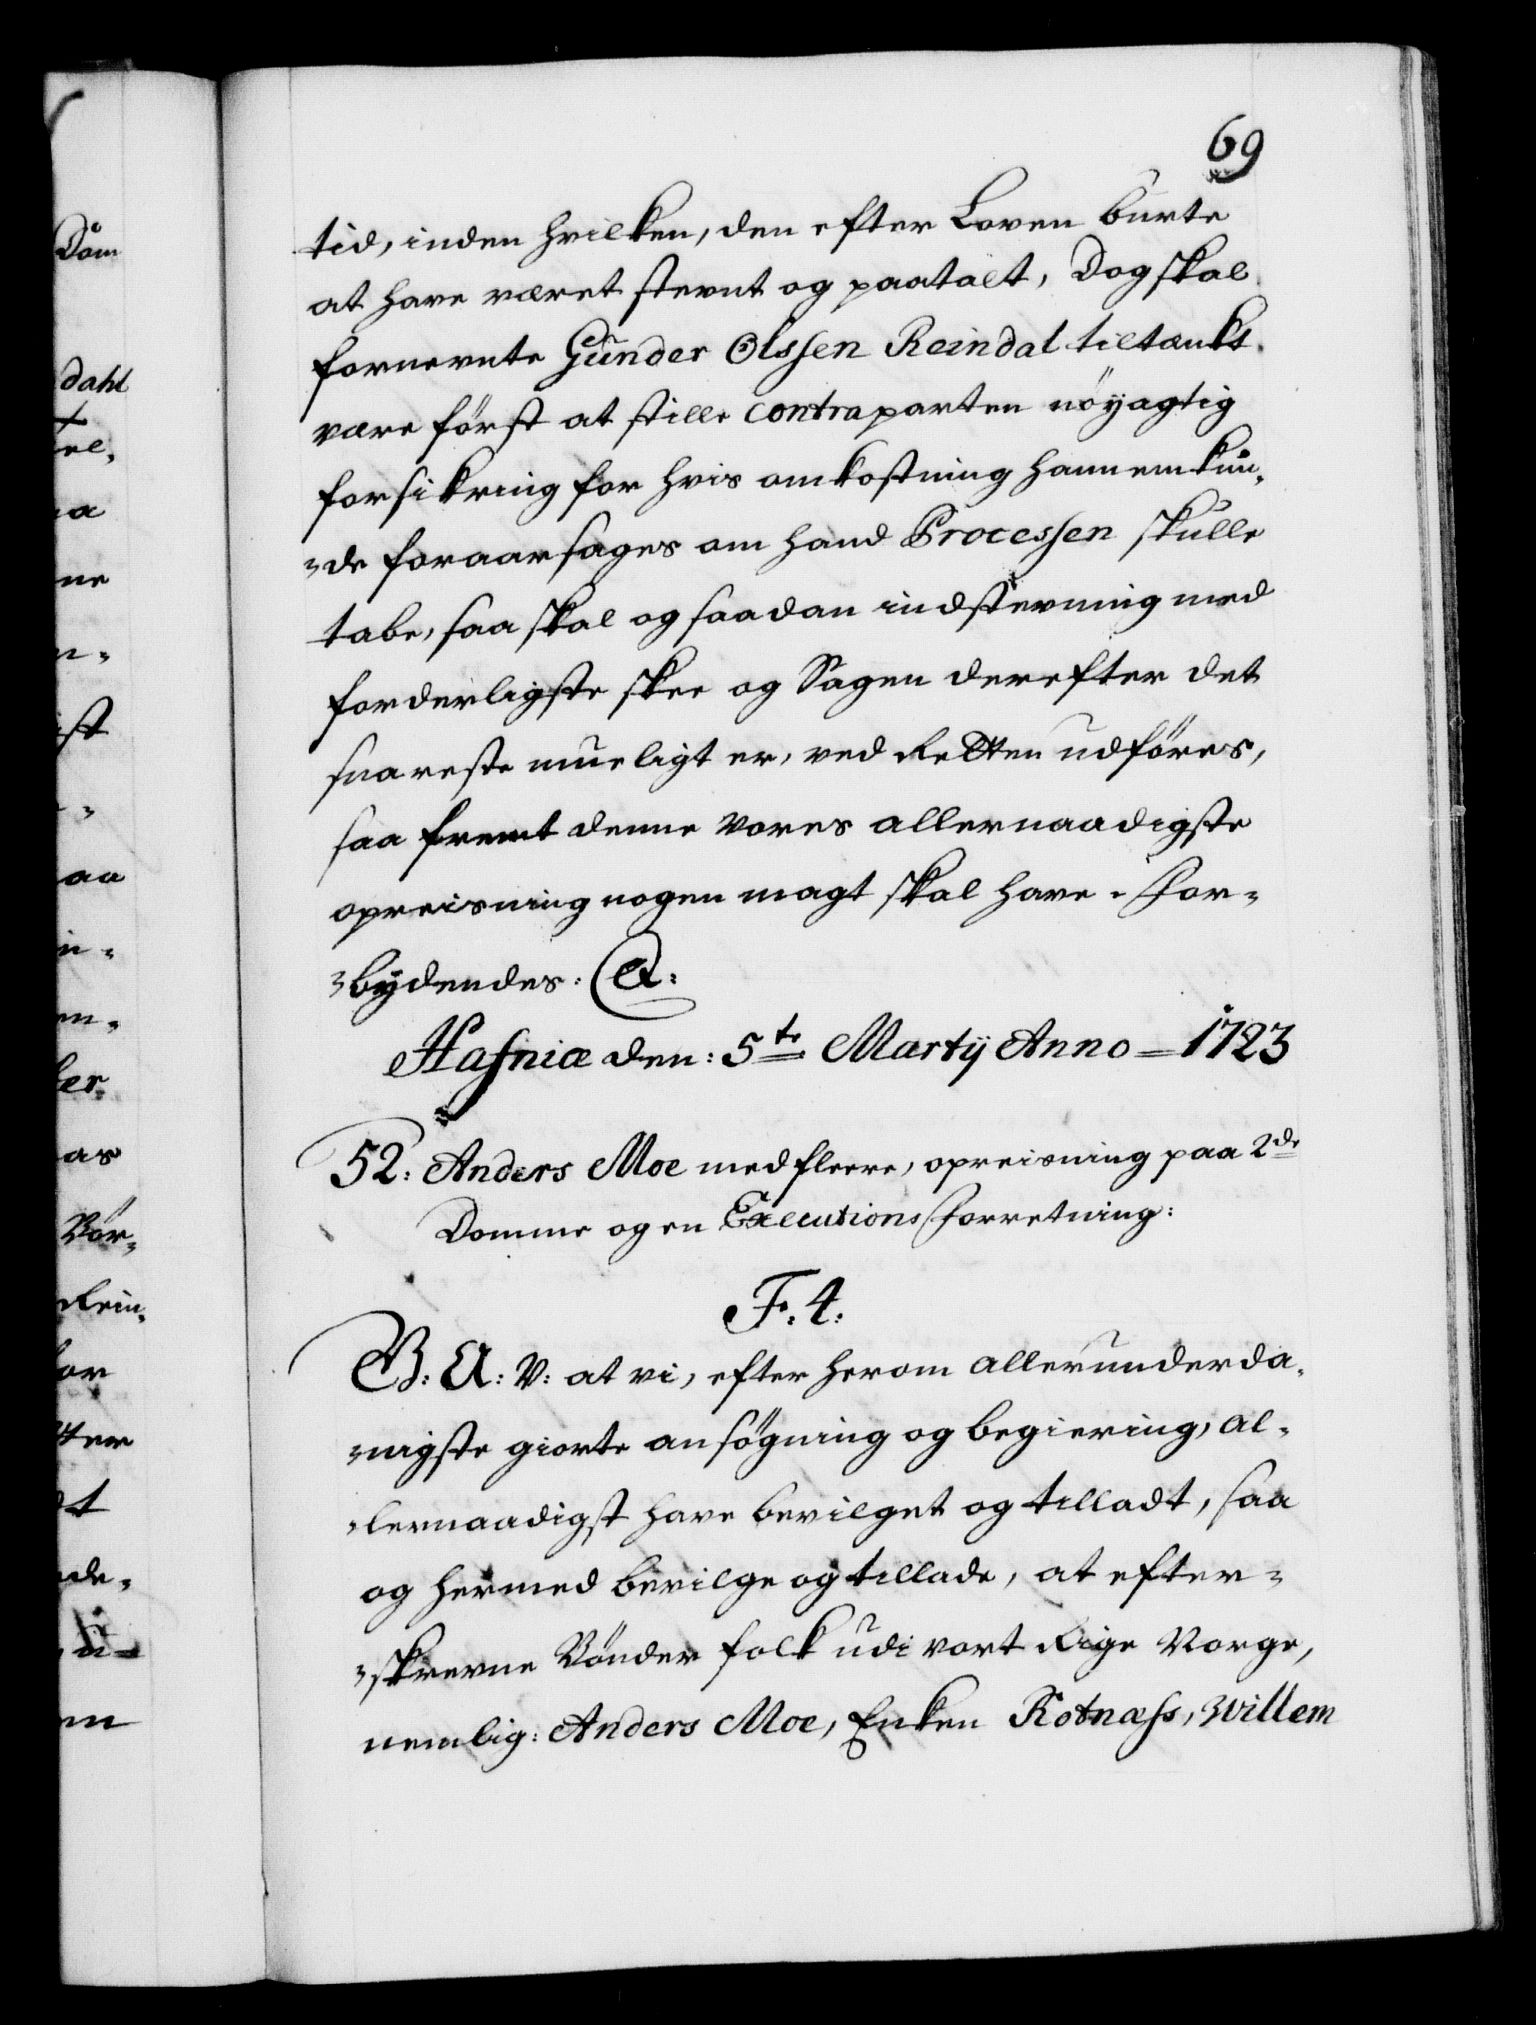 69
tid, inden hvilken, den efter Loven burte
at have været stevnt og paatalt, Dog skal
fornevnte Gunder Olssen Reindal tiltænkt
være først at stille contraparten nöÿagtig
forsikring for hvis omkostning hannem kun-
-de foraarsages om hand Processen skulle
tabe, saa skal og saadan indstevning med
forderligste skee og Sagen derefter det
snareste mueligt er, ved Retten udföres,
saa fremt denne Vores allernaadigste
opreisning nogen magt skal have. For-
-bydendes: &:
Hafniæ den: 5te Martÿ Anno = 1723
52: Anders Moe med fleere, opreisning paa 2de
Domme og en Executions Forretning:
F. 4.
G: A: V: at vi, efter herom allerunderda-
-nigste giorte ansögning og begiering, al-
-lernaadigst have bevilget og tilladt, saa
og hermed bevilge og tillade, at efter-
-skrevne Bönder folk udi vort Rige Norge,
nemlig: Anders Moe, Enken Rotnæss, Willem
Döm
dahl
el.
a
ne
n-
st
aa
in-
en-
ter
as
Bör-
Rein-
for
tter
dt
de-
u-
en